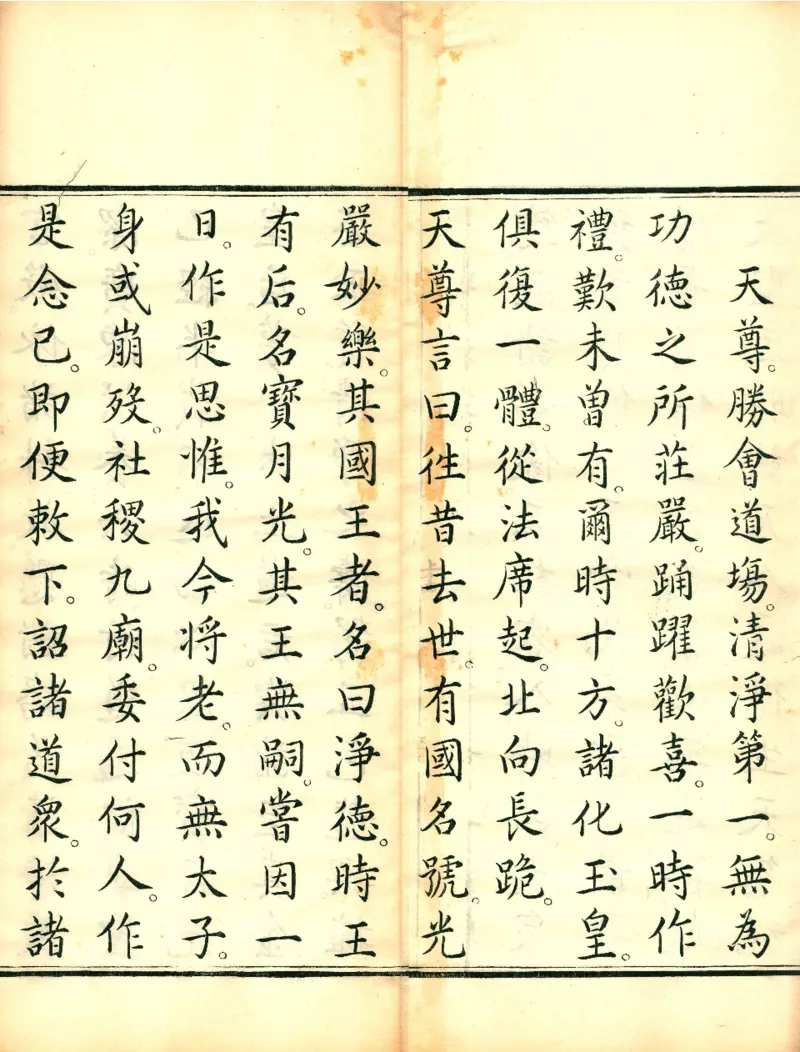 天尊。勝會道場。清淨第一。無為
功德之所莊嚴。踊躍歡喜。一時作
禮。歎未曾有。爾時十方。諸化玉皇。
俱復一體。從法席起。北向長跪。
天尊言曰。徃昔去世。有國名號。光
嚴妙樂。其國王者。名曰淨德。時王
有后。名寶月光。其王無嗣。嘗因一
日。作是思惟。我今将老。而無太子。
身或崩歿。社稷九廟。委付何人。作
是念已。即便敕下。詔諸道衆。於諸